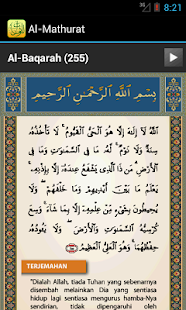 8:21
Al-Mathurat
Al-Baqarah (255)
بِسْمِ اللَّهِ الرَّحْمَٰنِ الرَّحِيمِ
اللَّهُ لَا إِلَٰهَ إِلَّا هُوَ الْحَيُّ الْقَيُّومُ ۚ لَا تَأْخُذُهُ
سِنَةٌ وَلَا نَوْمٌ ۚ لَهُ مَا فِي السَّمَاوَاتِ وَمَا فِي
الْأَرْضِ ۗ مَنْ ذَا الَّذِي يَشْفَعُ عِنْدَهُ إِلَّا
بِإِذْنِهِ ۚ يَعْلَمُ مَا بَيْنَ أَيْدِيهِمْ وَمَا خَلْفَهُمْ ۖ وَلَا
يُحِيطُونَ بِشَيْءٍ مِنْ عِلْمِهِ إِلَّا بِمَا شَاءَ ۚ وَسِعَ
كُرْسِيُّهُ السَّمَاوَاتِ وَالْأَرْضَ ۖ وَلَا يَئُودُهُ
حِفْظُهُمَا ۚ وَهُوَ الْعَلِيُّ الْعَظِيمُ
TERJEMAHAN
"Dialah Allah, tiada Tuhan yang sebenarnya
disembah melainkan Dia yang sentiasa
hidup lagi sentiasa mengurus hamba-Nya
sendirian, tidak dipengaruhi oleh